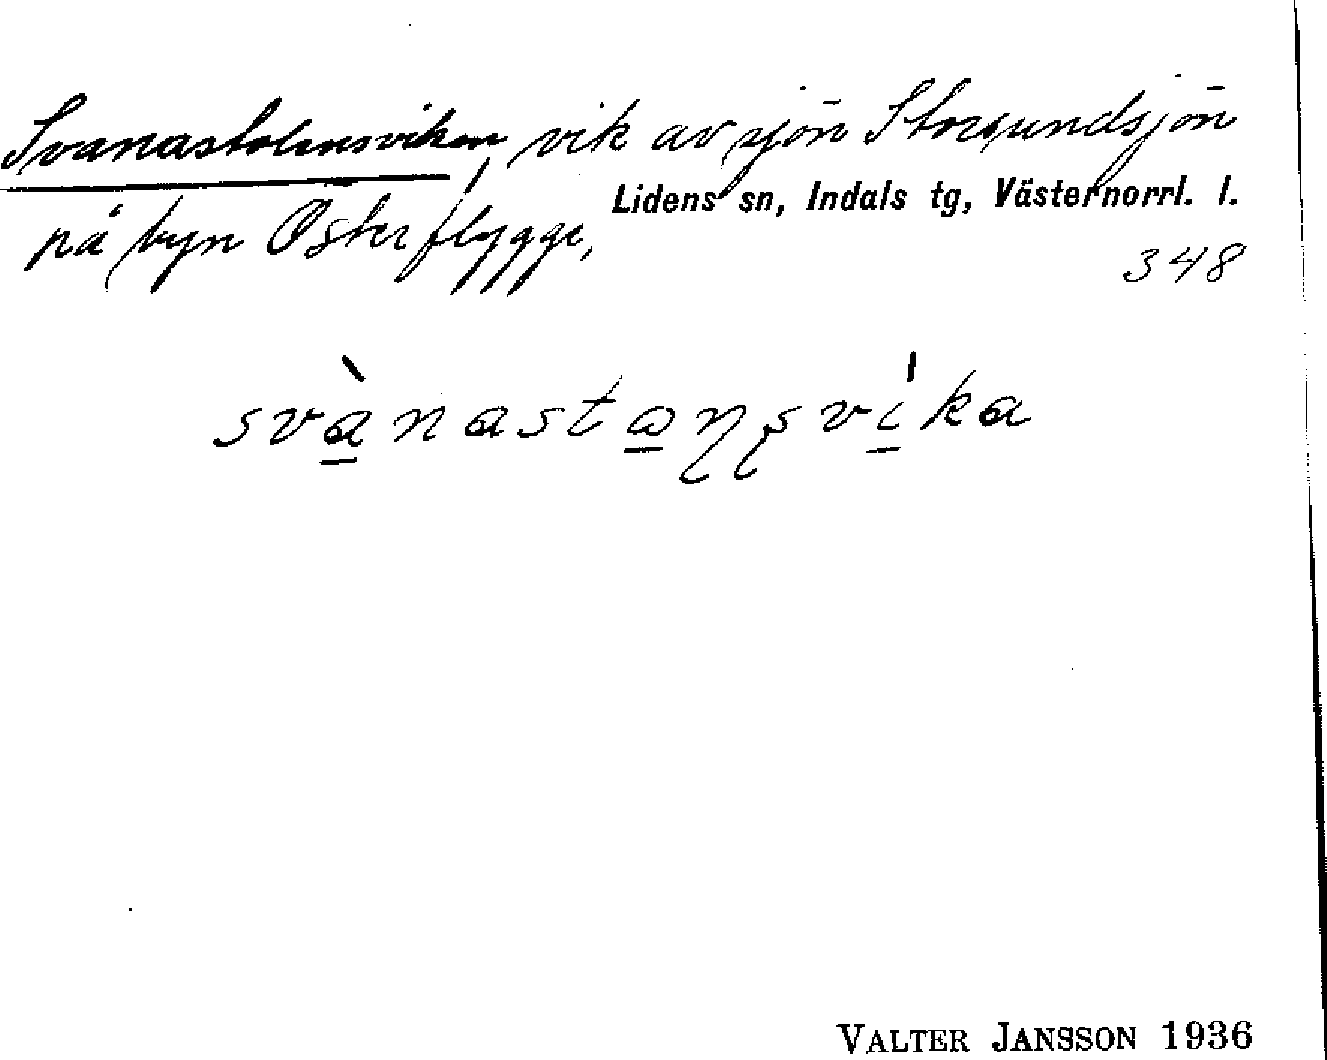 Svanastolensviken, vik av sjön Storsundsjön
på byn Österflygge,
Lidens sn, Indals tg, Västernorrl. l.
348
svànastaɳʂvíka
VALTER JANSSON 1936